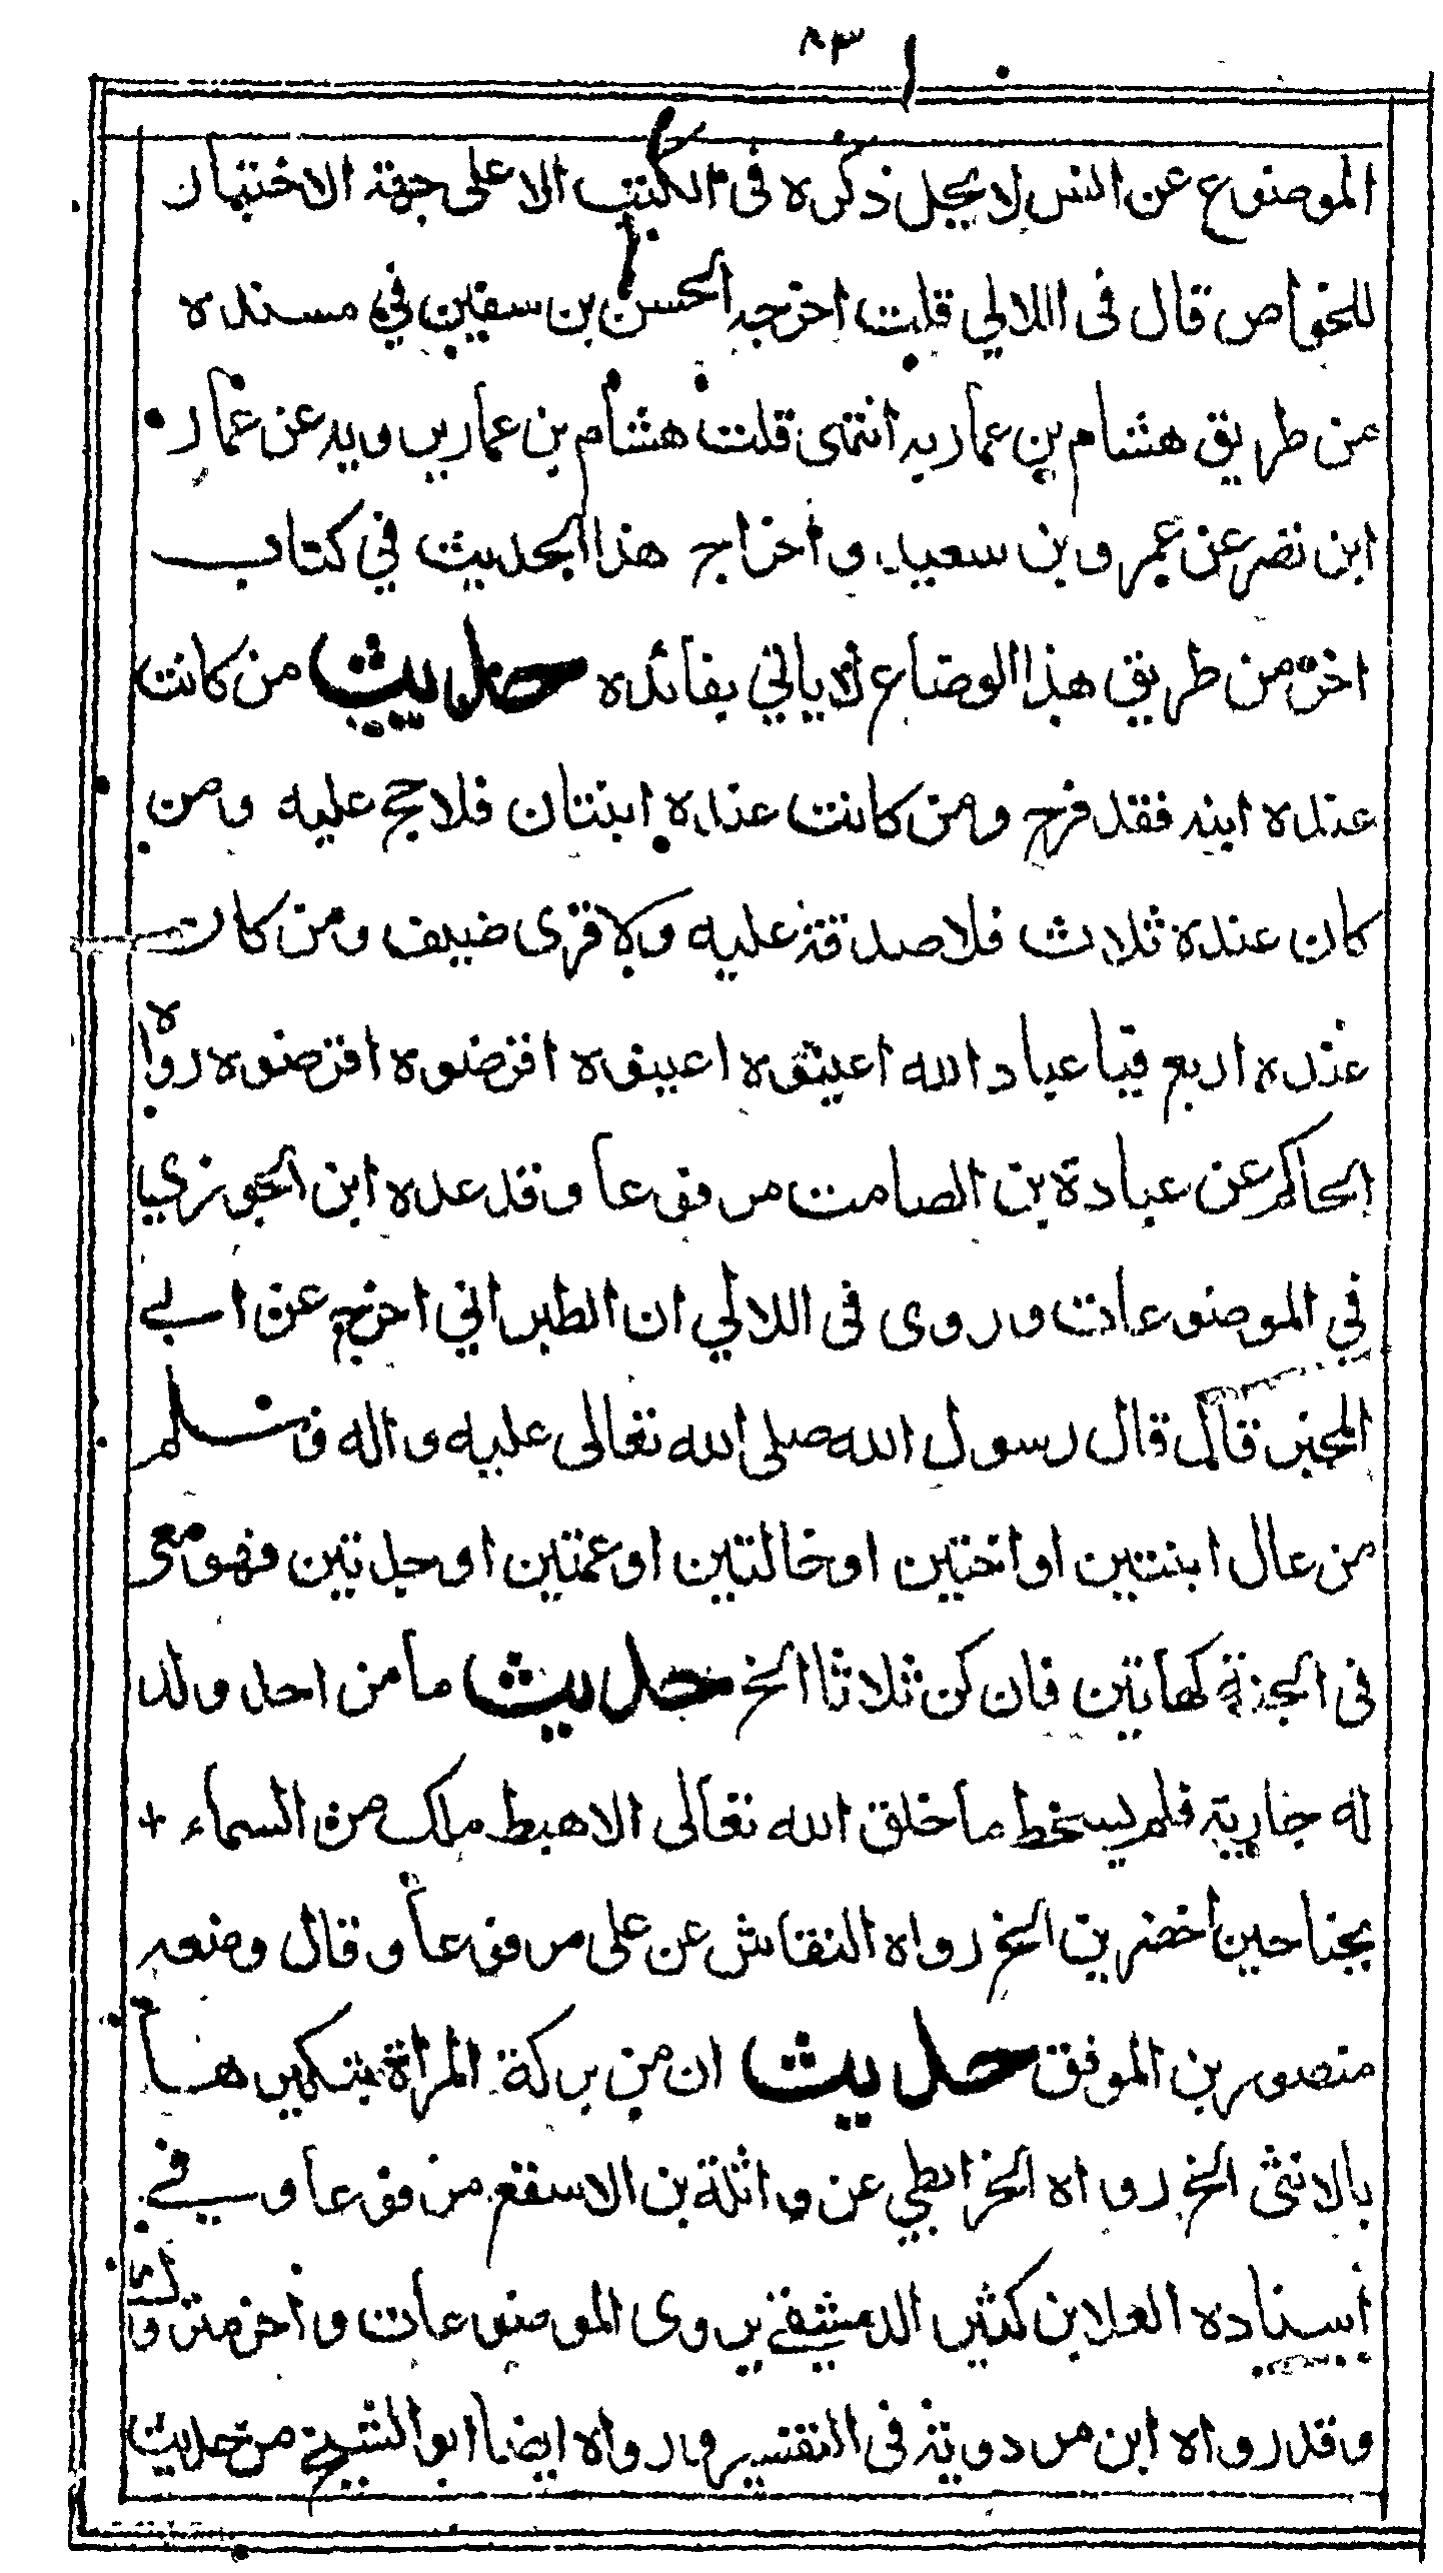 ٨٣
الموضوع عن انس لا يحل ذكره فى الكتب الا على جهة الاختبار
للخواص قال فى اللالي قلت اخرجه الحسن بن سفين في مسنده
من طريق هشام بن عمار به انتهى قلت هشام بن عمار يرويه عن عمار
ابن نصر عن عمرو بن سعيد واخراج هذا الحديث في كتاب
اخر من طريق هذا الوضاع لا ياتي بفائده حديث من كانت
عنده ابنه فقد فرح ومن كانت عنده ابنتان فلا حج عليه ومن
كان عنده ثلاث فلا صدقة عليه ولا قرى ضيف ومن كات
عنده اربع فيا عباد الله اعينوه اعينوه اقرضوه اقرضوه رواه
الحاكم عن عبادة بن الصامت مرفوعا وقد عده ابن الجوزي
في الموضوعات وروى فى اللالي ان الطبراني اخرج عن ابي
المجبر قال قال رسول الله صلى الله تعالى عليه واله وسلم
من عال ابنتين او اختين او خالتين او عمتين او جدتين فهو معى
فى الجنة كهاتين فان كن ثلاثا الخ حديث ما من احد ولد
له جارية فلم يسخط ما خلق الله تعالى الا هبط ملك من السماء +
بجناحين اخضرين الخ رواه النقاش عن على مرفوعا وقال وضعه
منصور بن الموفق حديث ان من بركة المراة بتكيرها
بالانثى الخ رواه الخرائطي عن واثلة بن الاسقع مرفوعا وفي
اسناده العلا بن كثير الدمشقي يروى الموضوعات واخر متروك
وقد رواه ابن مردوية فى التفسير ورواه ايضا ابو الشيخ من حديث